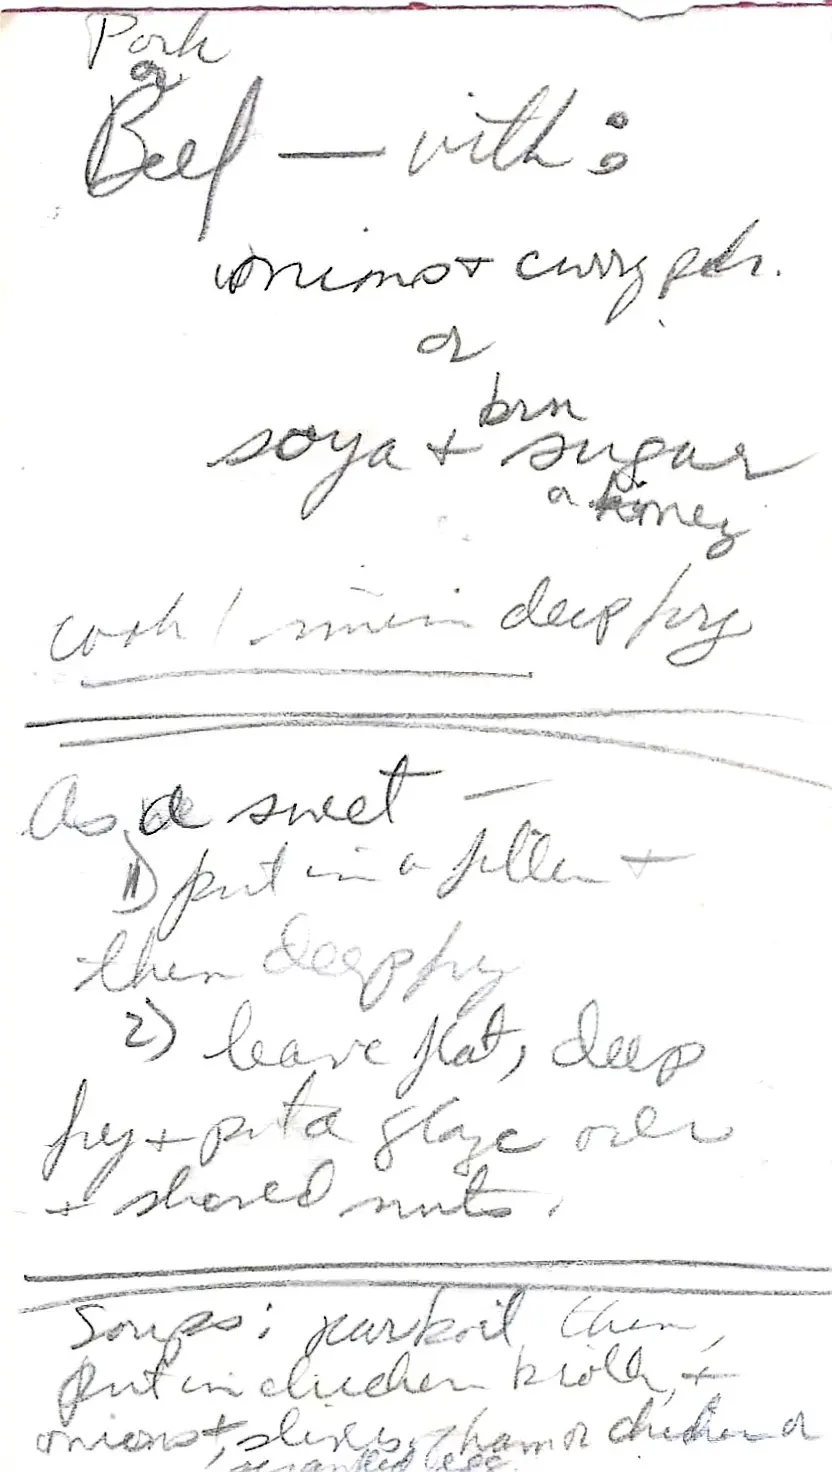 Pork
or
Beef — with:
onions + curry pdr.
or
brn
soya + sugar
or honey
cook 1 min in deep fry
As a sweet —
1) put in a filler +
then deep fry
2) leave flat, deep
fry + put a glaze over
+ shaved nuts.
Soups: parboil then,
put in chicken broth, +
onions +, slices, ham or chicken or
egg.